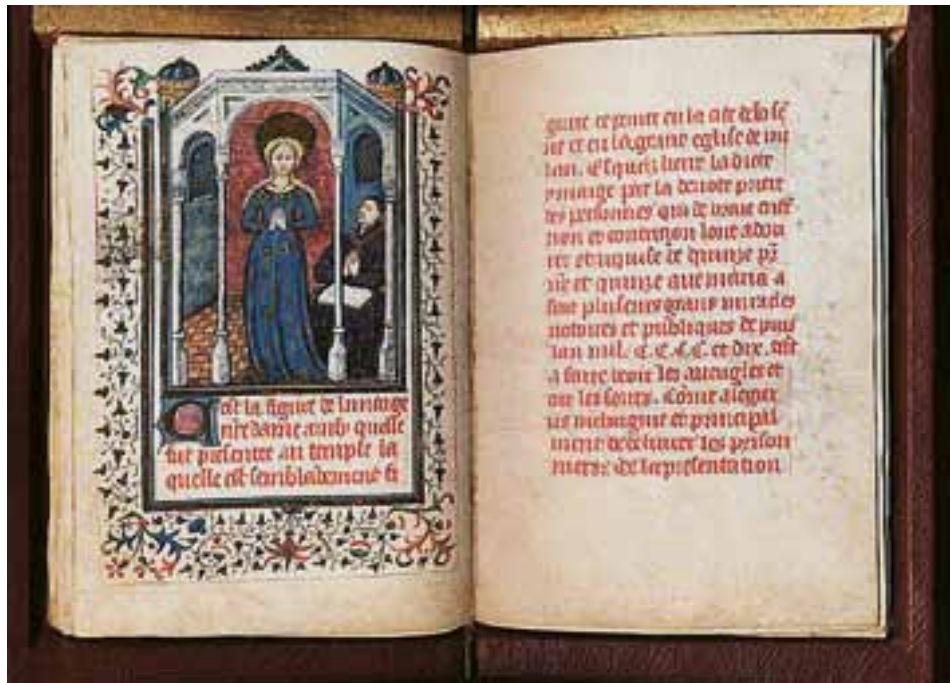 est la figure de limage
nre dame ainsi quelle
fut presentee au temple la
quelle est semblablement
en la cite de
et en la grant eglise de mi
lan. Esquelz lieux la dicte
ymage par la devote priere
des personnes qui de vraie
et contrition lont
de quinze
et quinze ave maria a
fait plusieurs grans miracles
notoires et publiques de puis
lan mil. C.C.C.C. et dix.
a faire veoir les aveugles et
oir les sours. Come alegier
et principal
ment de delivrer les prison
niers. de la presentation